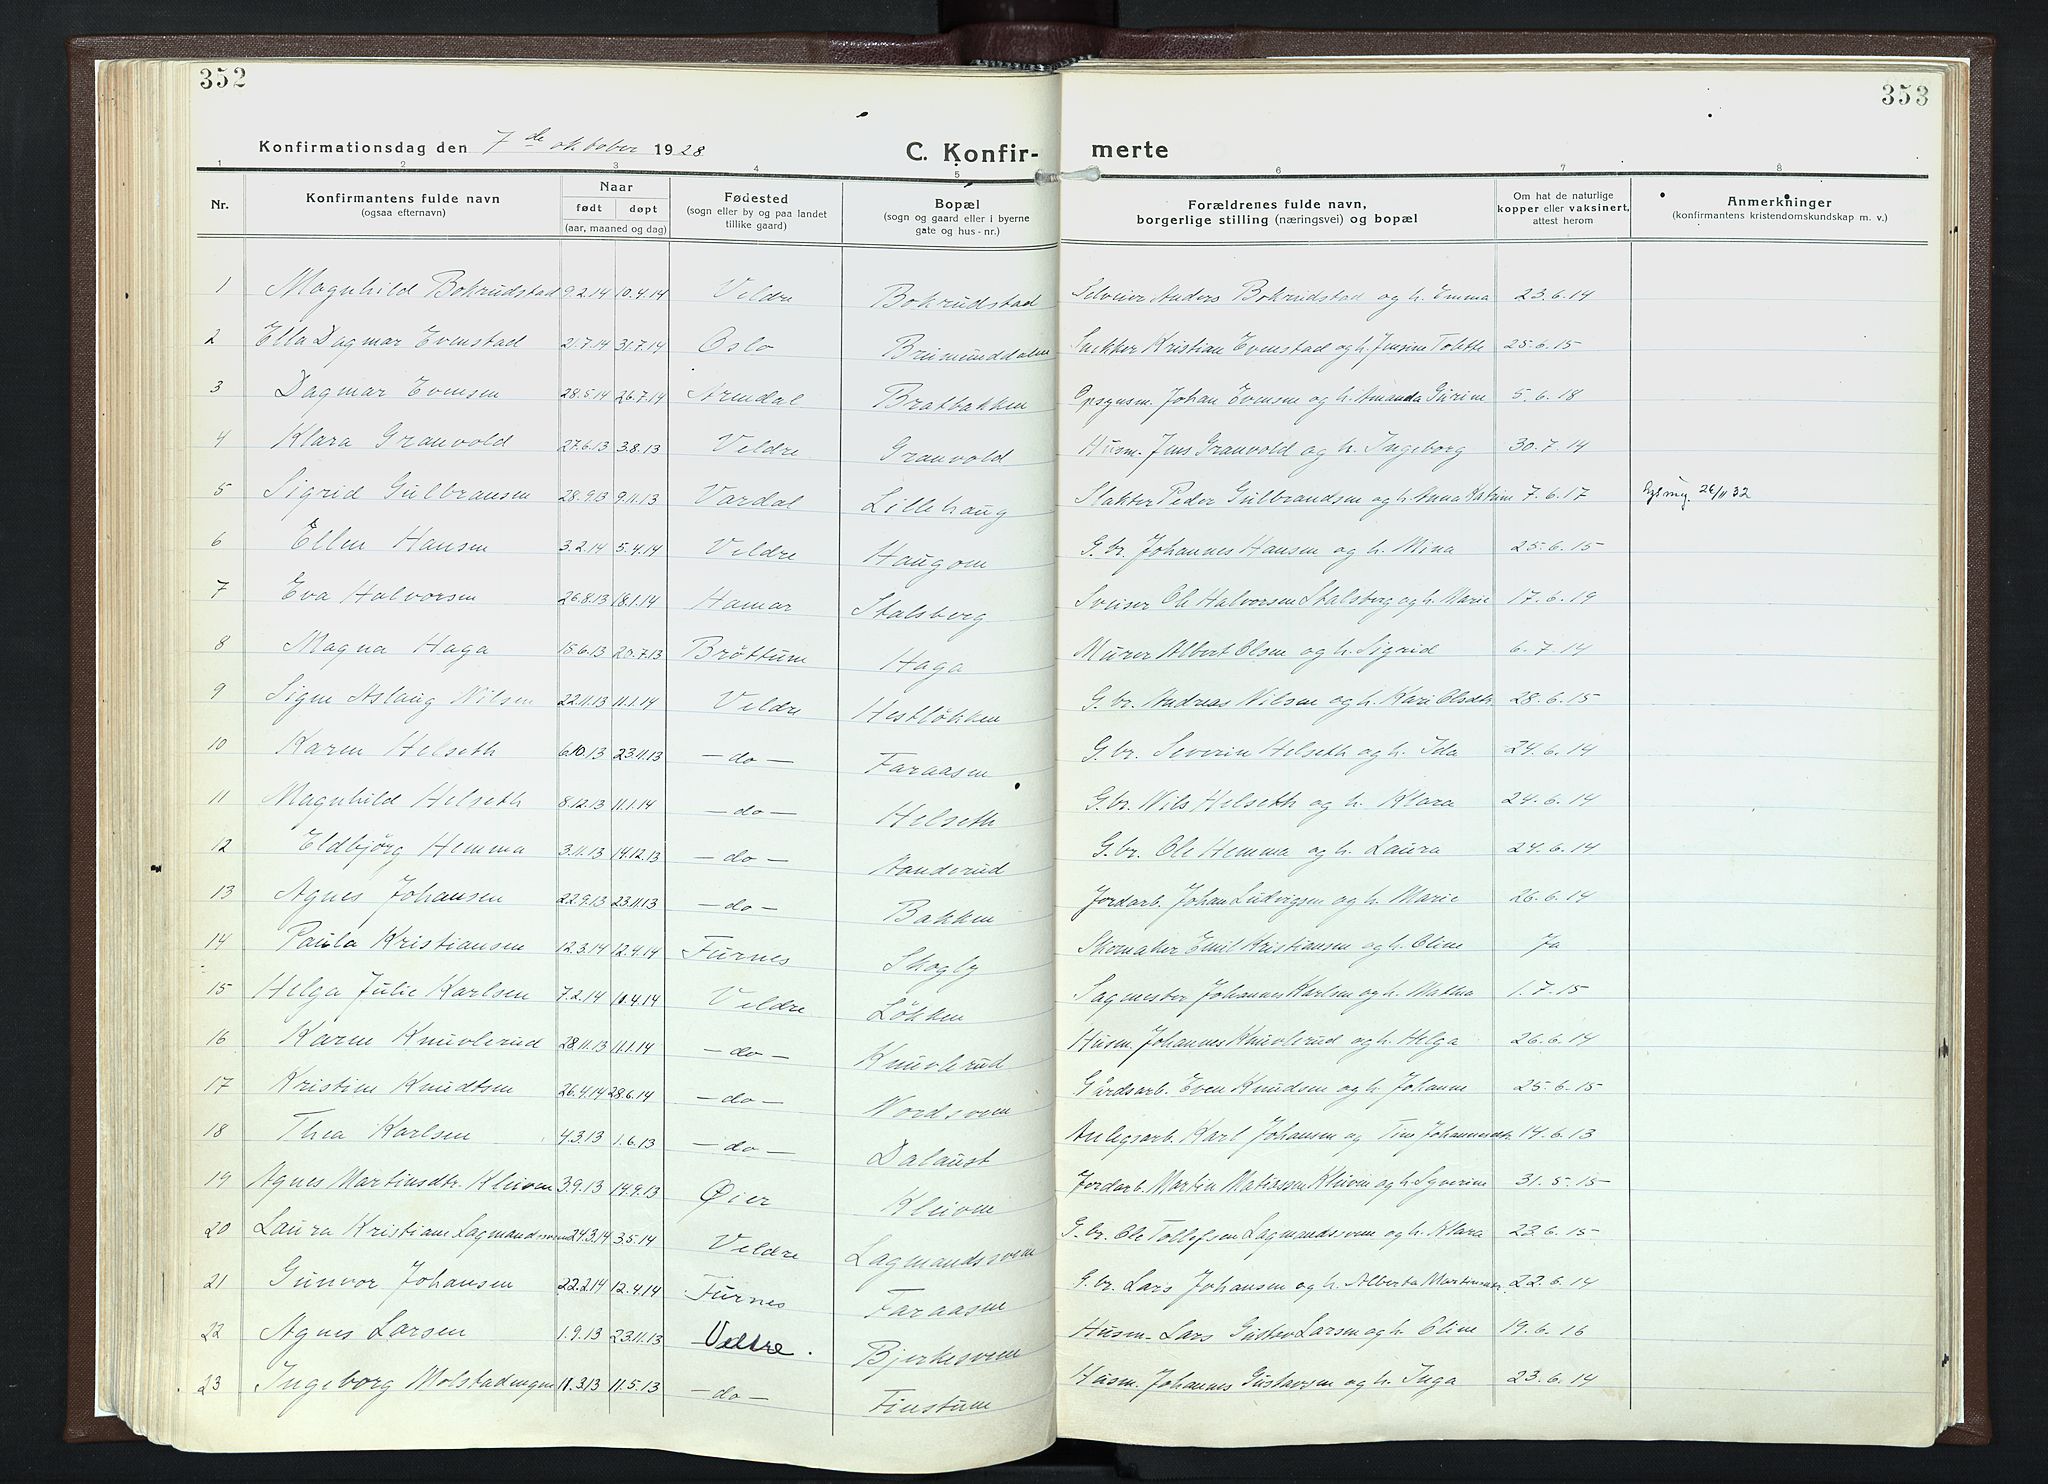 352
353
Konfirmationsdag den 7de oktober 1928
C. Konfir- merte
1 2 3 4 5 6 7 8
Nr.
Konfirmantens fulde navn
(ogsaa efternavn)
Naar
født døpt
(aar, maaned og dag)
Fødested
(sogn eller by og paa landet
tillike gaard)
Bopæl
(sogn og gaard eller i byerne
gate og hus-nr.)
Forældrenes fulde navn,
borgerlige stilling (næringsvei) og bopæl
Om hat de naturlige
kopper eller vaksinert,
attest herom
Anmerkninger
(konfirmantens kristendomskundskap m. v.)
1 Magnhild Bokrudstad 9.2.14 10.4.14 Veldre Bokrudstad Selveier Anders Bokrudstad og h. Emma 23.6.14
2 Ella Dagmar Evenstad 21.7.14 31.7.14 Oslo Brumunddalen Snekker Kristian Evenstad og h. Jensine Tolette 25.6.15
3 Dagmar Evensen 28.5.14 26.7.14 Arendal Bratbakken Opsynsm. Johan Evensen og h. Amanda Gurine 5.6.18
4 Klara Granvold 27.6.13 3.8.13 Veldre Granvold Husm. Jens Granvold og h. Ingeborg 30.7.14
5 Sigrid Gulbransen 28.9.13 9.11.13 Vardal Lillehaug Slakter Peder Gulbrandsen og h. Anna Katrine 7.6.17 26/11 32
6 Ellen Hansen 3.2.14 5.4.14 Veldre Haugom G.br. Johannes Hansen og h. Mina 25.6.15
7 Eva Halvorsen 26.8.13 18.1.14 Hamar Stalsberg Sveiser Ole Halvorsen Stalsberg og h. Marie 17.6.19
8 Magna Haga 15.6.13 20.7.13 Brøttum Haga Murer Albert Olsen og h. Sigrid 6.7.14
9 Signe Aslaug Nilsen 22.11.13 11.1.14 Veldre Hestløkken G.br. Andreas Nilsen og h. Kari Olsdtr. 28.6.15
10 Karen Helseth 6.10.13 23.11.13 -do- Faraasen G.br. Severin Helseth og h. Ida 24.6.14
11 Magnhild Helseth 8.12.13 11.1.14 -do- Helseth G.br. Nils Helseth og h. Klara 24.6.14
12 Eldbjørg Hemma 3.11.13 14.12.13 -do- Aanderud G.br. Ole Hemma og h. Laura 24.6.14
13 Agnes Johansen 22.9.13 23.11.13 -do- Bakken Jordarb. Johan Ludvigsen og h. Marie 26.6.14
14 Paula Kristiansen 12.3.14 12.4.14 Furnes Skogly Skomaker Emil Kristiansen og h. Oline Ja
15 Helga Julie Karlsen 7.2.14 10.4.14 Veldre Løkken Sagmester Johannes Karlsen og h. Mathea 1.7.15
16 Karen Knuvlerud 28.11.13 11.1.14 -do- Knuvlerud Husm. Johannes Knuvlerud og h. Helga 26.6.14
17 Kristine Knudtsen 26.4.14 28.6.14 -do- Nordsveen Gårdsarb. Even Knudsen og h. Johanne 25.6.15
18 Thea Karlsen 4.3.13 1.6.13 -do- Dalaust Anlegsarb. Karl Johansen og Tina Johannesdtr. 14.6.13
19 Agnes Martinsdtr. Kleiven 3.9.13 14.9.13 Øier Kleiven Jordarb. Martin Matissen Kleiven og h. Syverine 31.5.15
20 Laura Kristiane Lagmandssveen 24.3.14 3.5.14 Veldre Lagmandssveen G.br. Ole Tollefsen Lagmandssveen og h. Klara 23.6.15
21 Gunvor Johansen 22.2.14 12.4.14 Furnes Faraasen G.br. Lars Johansen og h. Alberta Martinsdtr. 22.6.14
22 Agnes Larsen 1.9.13 23.11.13 Veldre. Bjerkesveen Husm. Lars Gustav Larsen og h. Oline 19.6.16
23 Ingeborg Molstadengen 11.3.13 11.5.13 -do- Finstuen Husm. Johannes Gustavsen og h. Inga 23.6.14